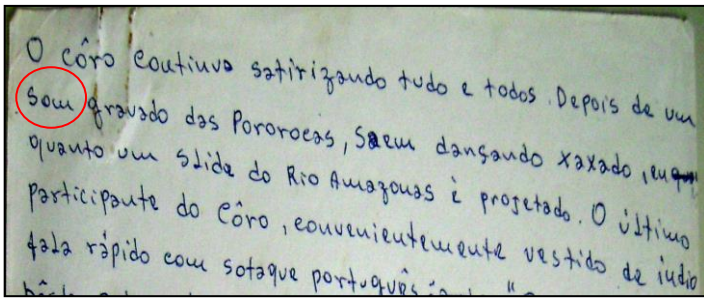 O côro continua satirizando tudo e todos. Depois de um
som gravado das Pororocas, saem dansando xaxado, en
quanto um slide do Rio Amazonas é projetado. O último
participante do Côro, convenientemente vestido de índio
fala rápido com sotaque português